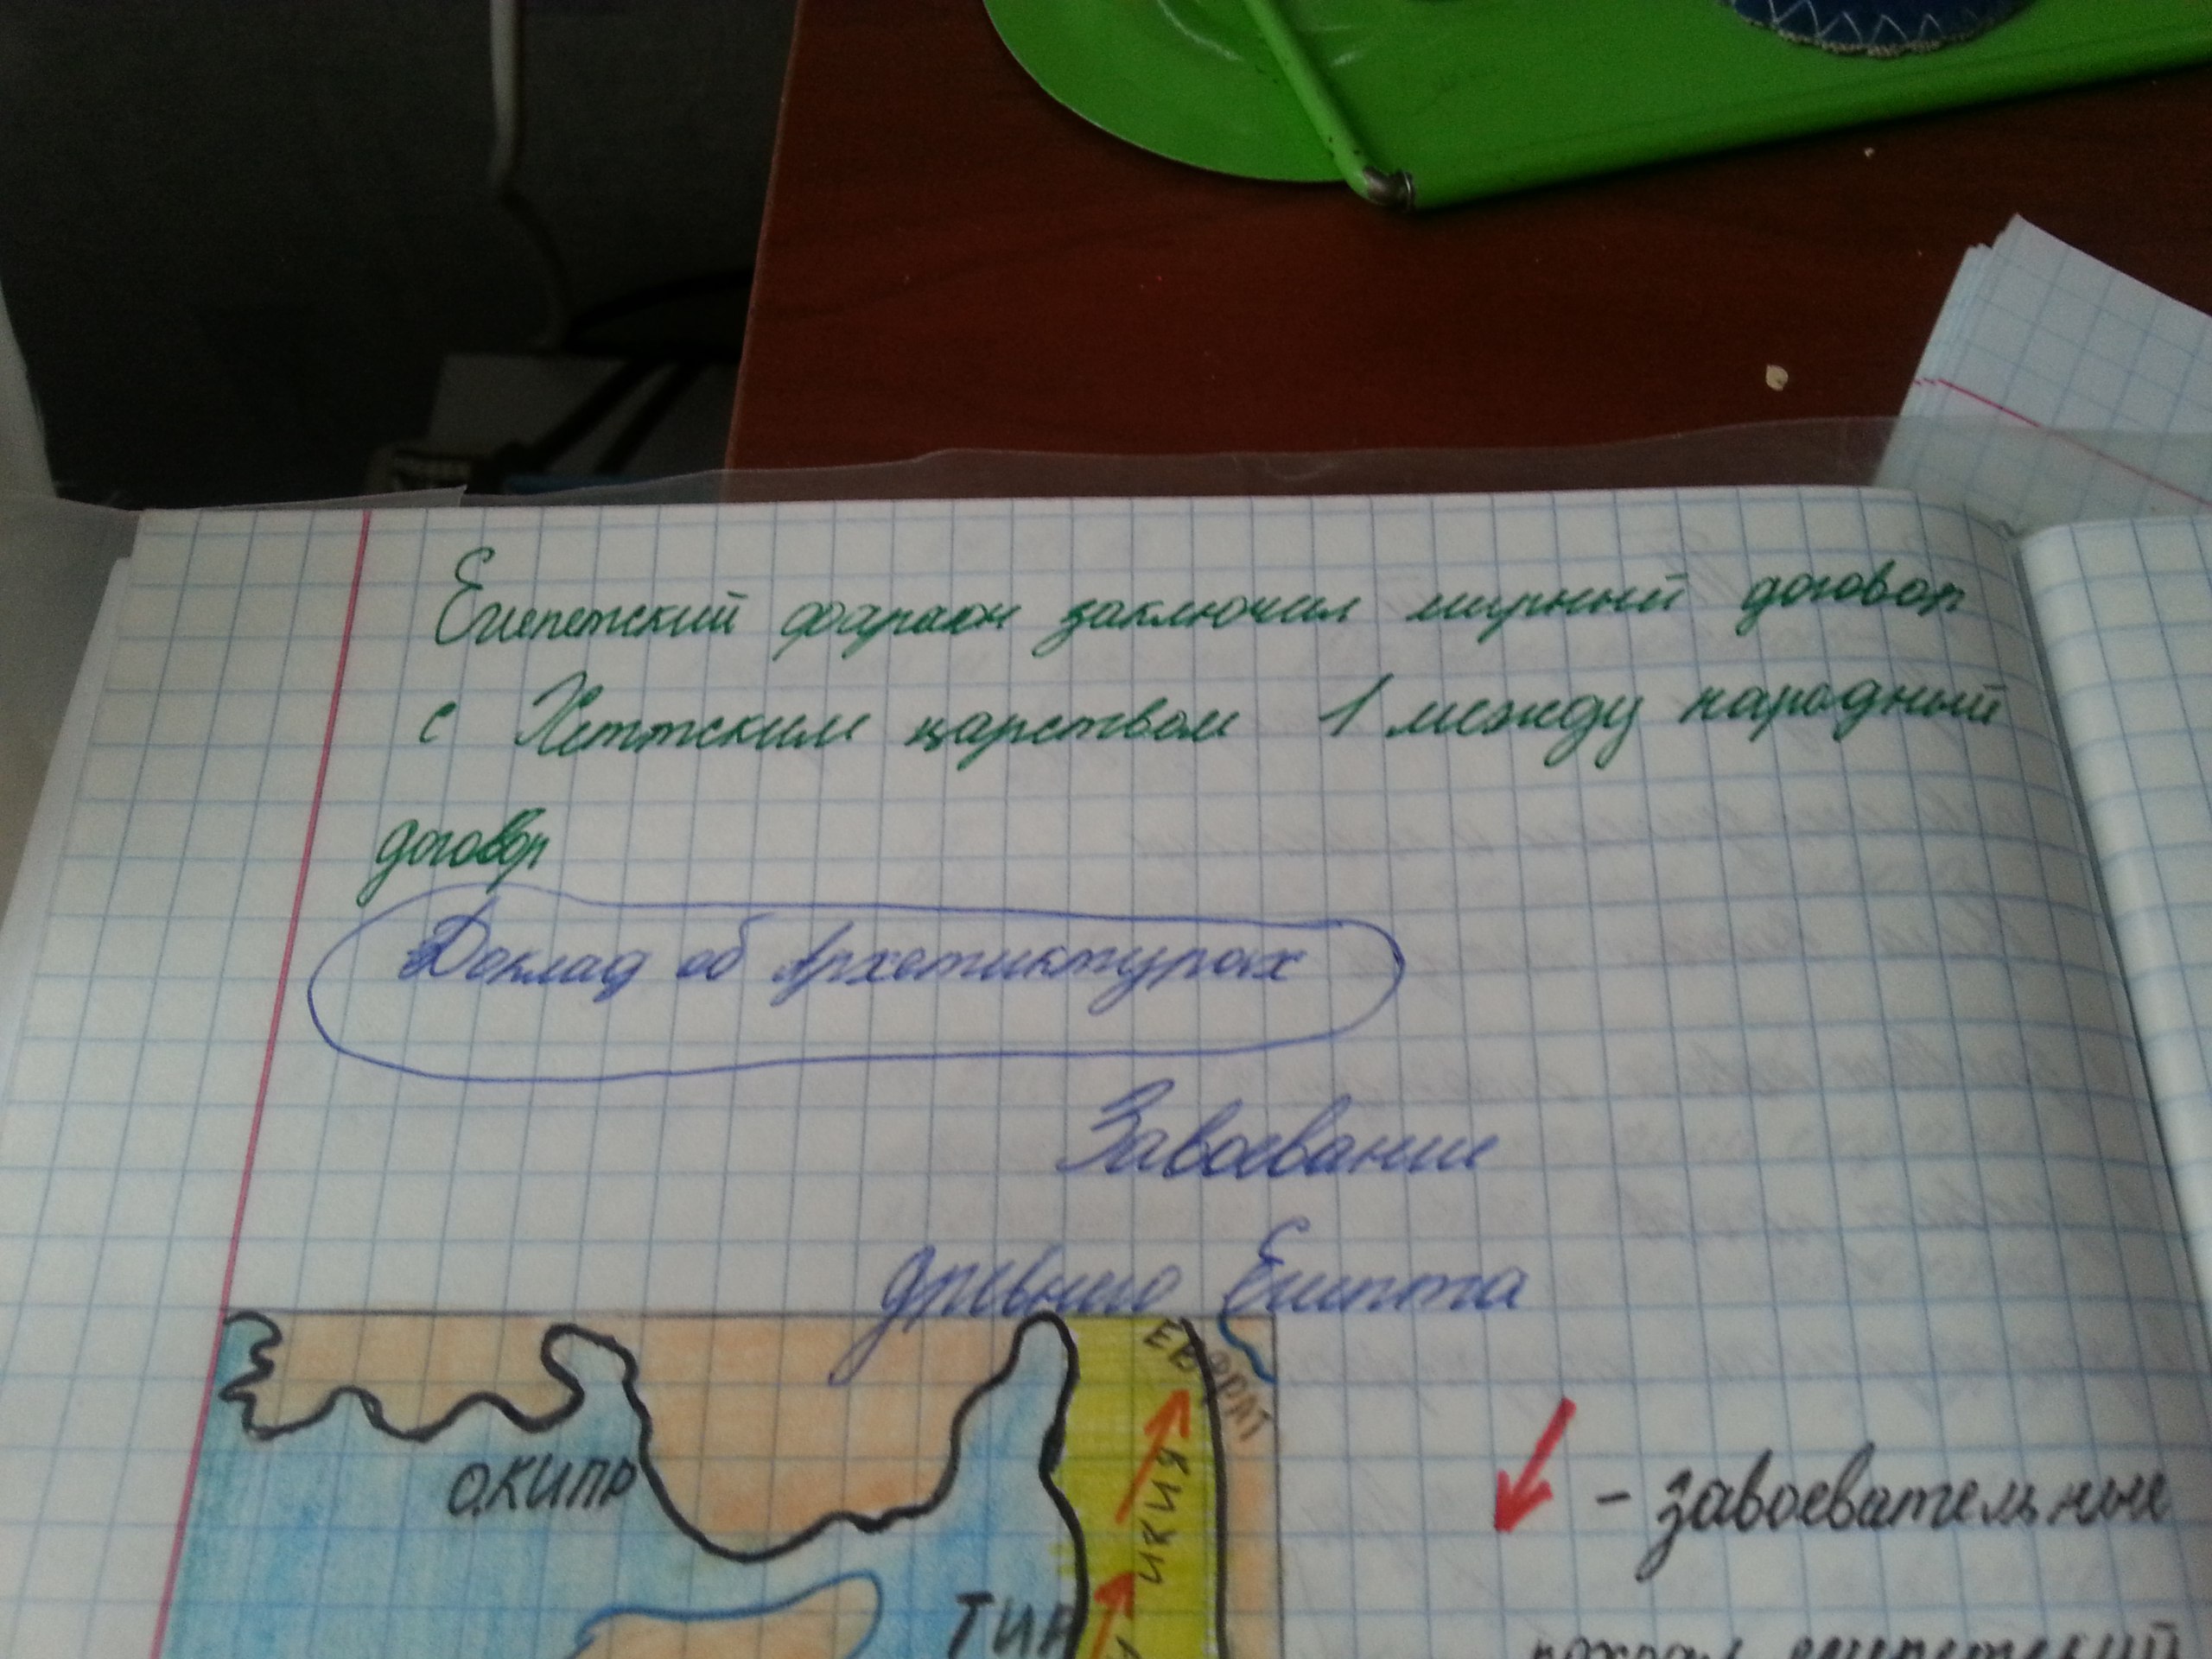 Египетский фараон заключил мирный договор
с Хеттским царством 1 между народный
договор
Доклад об Архетиктурах
Завоевание
древнего Египта
ЕВФРАТ
О.КИПР
ИКИЯ
ТИР
- завоевательные
египетский